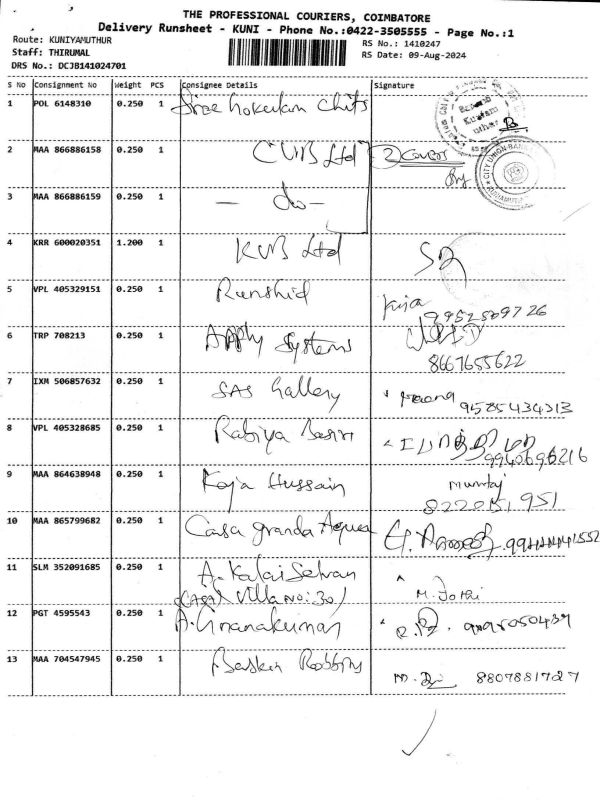 THE PROFESSIONAL COURIERS, COIMBATORE
Delivery Runsheet - KUNI - Phone No.:0422-3505555 - Page No.:1
Route: KUNIYAMUTHUR
RS No.: 1410247
Staff: THIRUMAL
RS Date: 09-Aug-2024
DRS No.: DCJ8141024701
S No Consignment No Weight PCS Consignee Details Signature
1 POL 6148310 0.250 1 Sree Gokulam Chits
2 MAA 866886158 0.250 1 CUB Ltd 2 Covers
CITY UNION BANK
3 MAA 866886159 0.250 1 - do -
4 KRR 600020351 1.200 1 KVB Ltd
5 VPL 405329151 0.250 1 Runshid
6 TRP 708213 0.250 1 Apply Systems
8667655622
7 IXM 506857632 0.250 1 SAS Gallery
9585434313
8 VPL 405328685 0.250 1 Rabiya Basiri
9940696216
9 MAA 864638948 0.250 1 Koja Hussain Mumtaj
8220151951
10 MAA 865799682 0.250 1 Casa granda Aquea
11 SLM 352091685 0.250 1 A. Kalai Selvan M. Jothi
(CASA Villa No: 30)
12 PGT 4595543 0.250 1 A. Gnanakumar
13 MAA 704547945 0.250 1 Baskin Robbins
8807881727